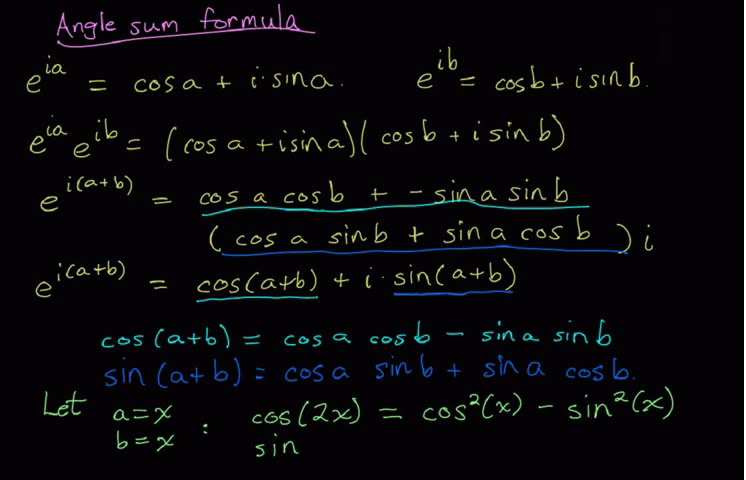 Angle sum formula
e^{ia} = cos a + i · sin a. e^{ib} = cos b + i sin b.
e^{ia} e^{ib} = (cos a + i sin a)(cos b + i sin b)
e^{i(a+b)} = cos a cos b + - sin a sin b
(cos a sin b + sin a cos b) i
e^{i(a+b)} = cos(a+b) + i · sin(a+b)
cos (a+b) = cos a cos b - sin a sin b
sin (a+b) = cos a sin b + sin a cos b.
Let a = x : cos(2x) = cos²(x) - sin²(x)
b = x sin